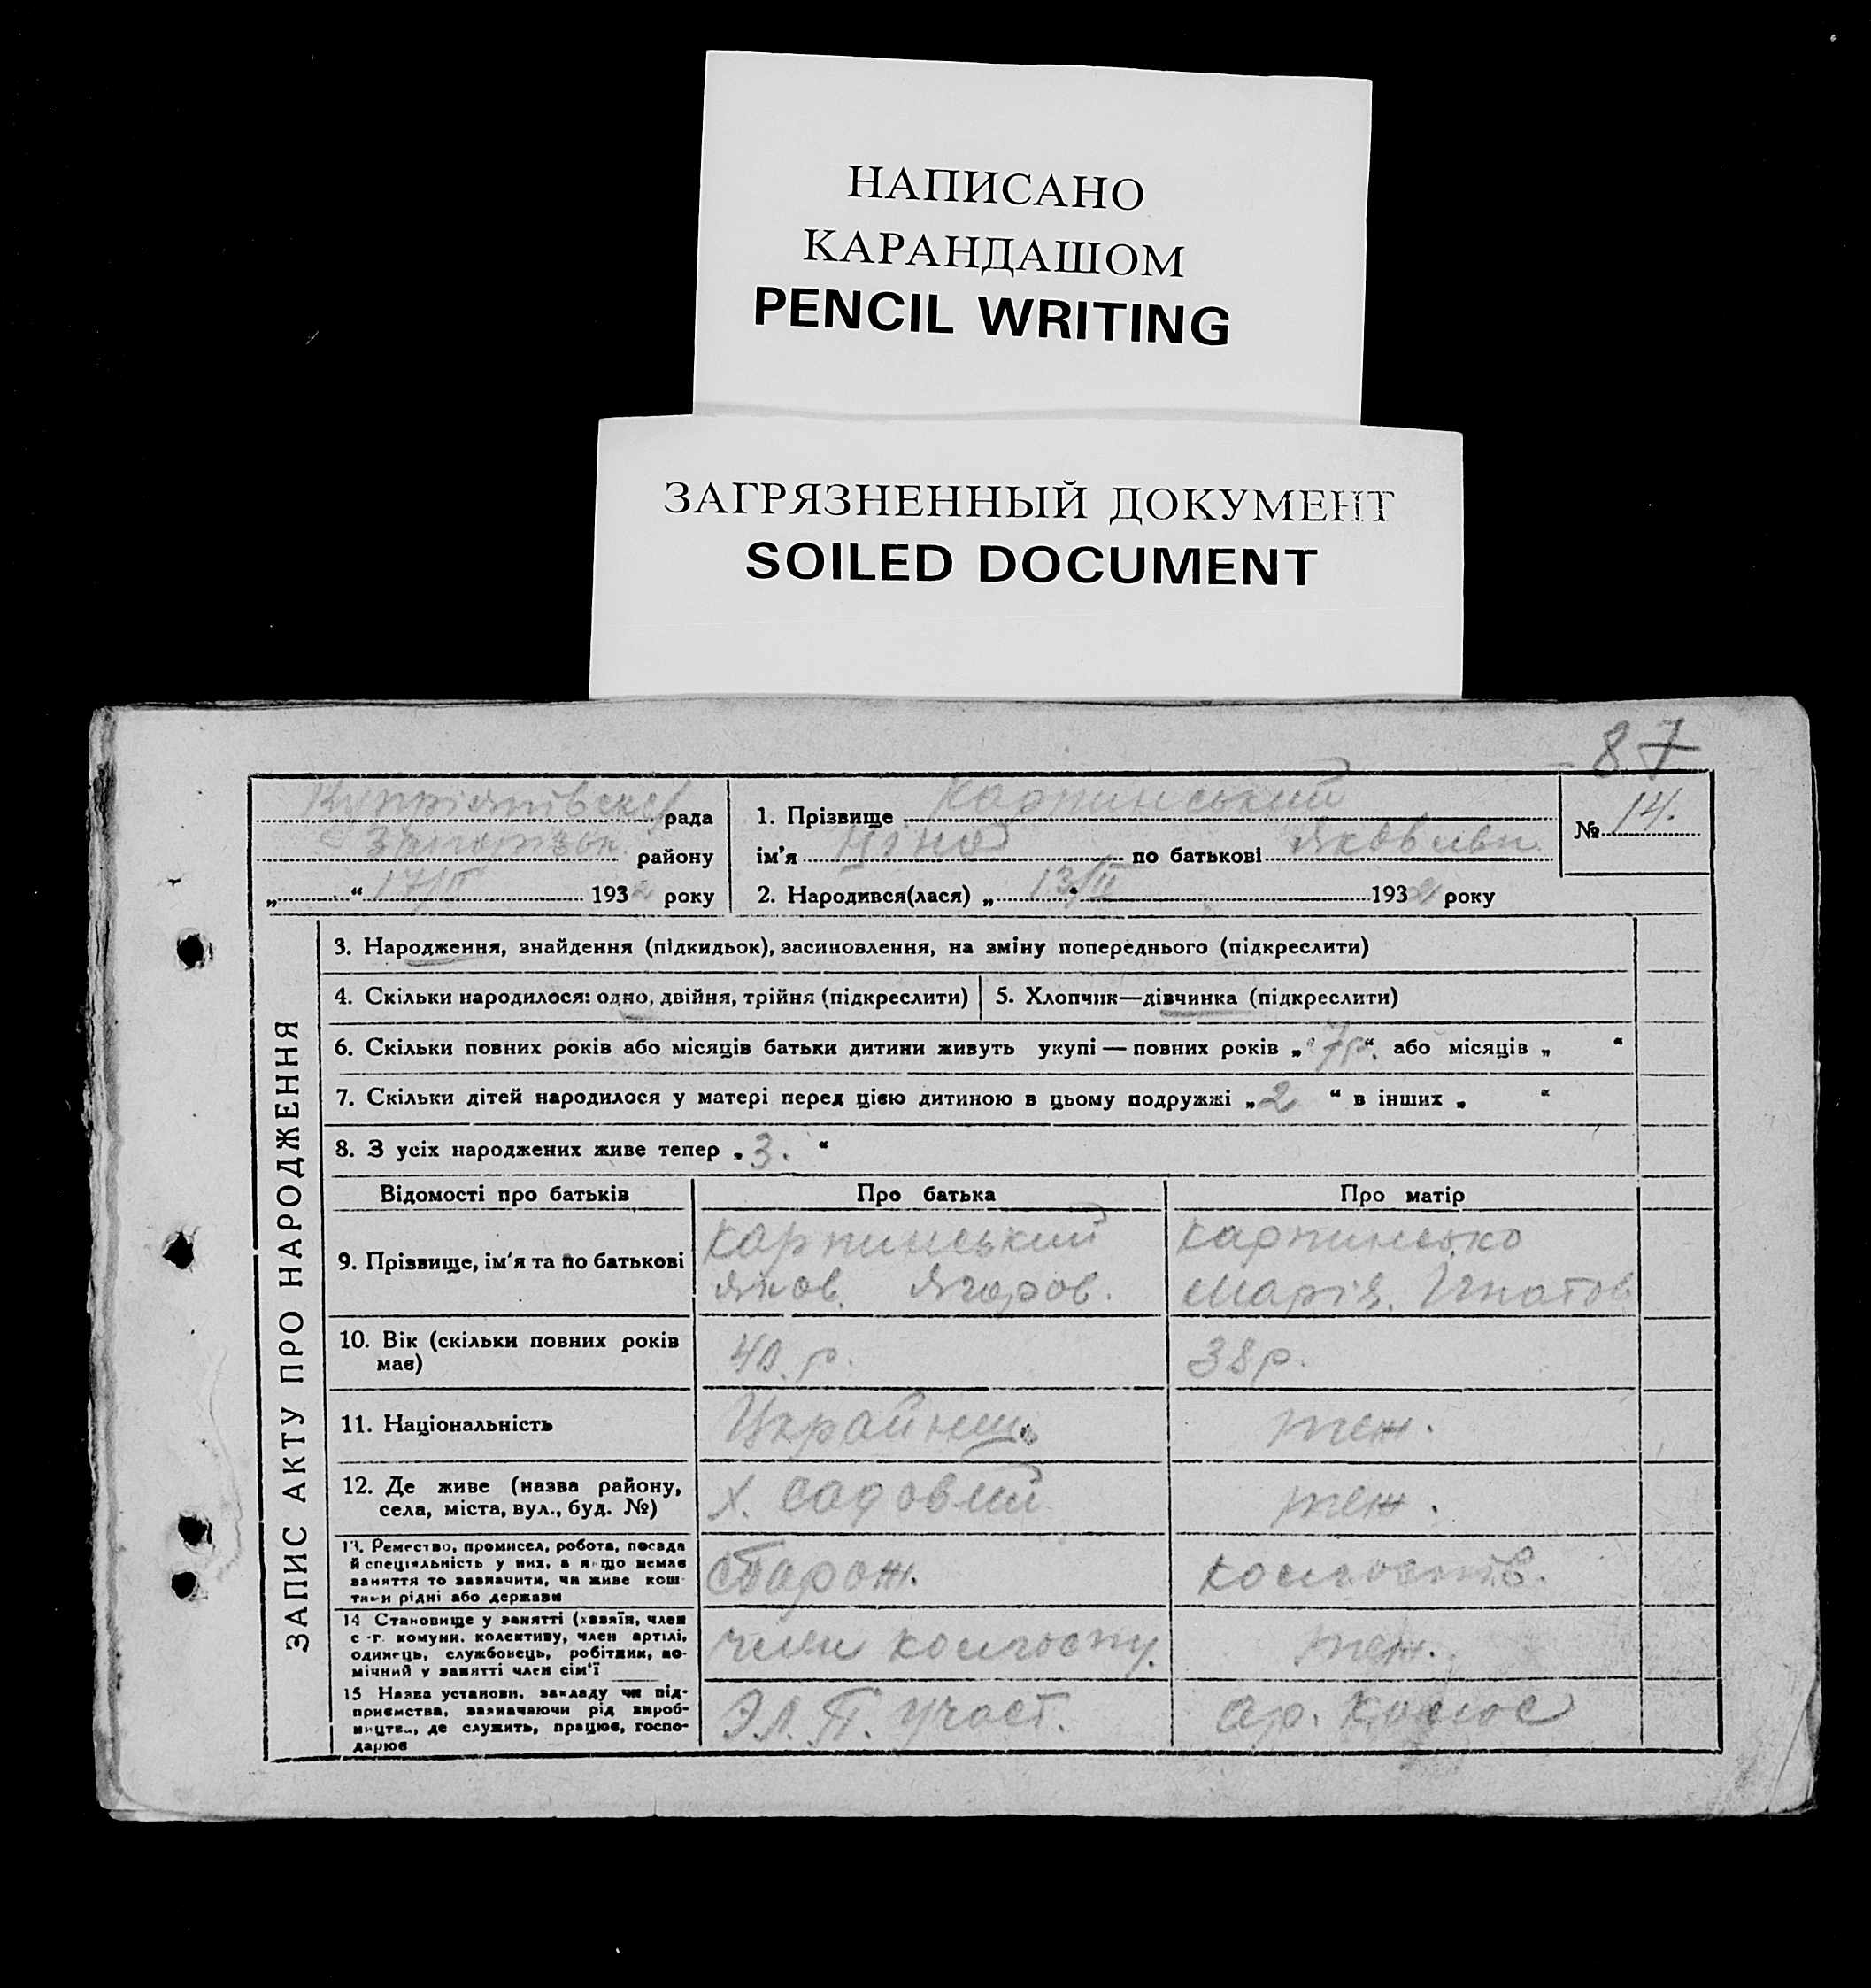 НАПИСАНО
КАРАНДАШОМ
PENCIL WRITING
ЗАГРЯЗНЕННЫЙ ДОКУМЕНТ
SOILED DOCUMENT
87
рада
району
„ “ 17/II 1932 року
1. Прізвище Карпинський
ім'я Ніна по батькові Яковлевн
2. Народився(лася) „ 13/II 1932 року
№ 14.
ЗАПИС АКТУ ПРО НАРОДЖЕННЯ
3. Народження, знайдення (підкидьок), засиновлення, на зміну попереднього (підкреслити)
4. Скільки народилося: одно, двійня, трійня (підкреслити)
5. Хлопчик—дівчинка (підкреслити)
6. Скільки повних років або місяців батьки дитини живуть укупі — повних років „ 7р. “ або місяців „ “
7. Скільки дітей народилося у матері перед цією дитиною в цьому подружжі „ 2 “ в інших „ “
8. З усіх народжених живе тепер „ 3. “
Відомості про батьків Про батька Про матір
9. Прізвище, ім'я та по батькові
Карпинський
Яков. Ягоров.
Карпинсько
Марія. Ігнатов
10. Вік (скільки повних років
має)
40. р.
38 р.
11. Національність
Українець
теж.
12. Де живе (назва району,
села, міста, вул., буд. №)
х. Садовий
теж.
13. Ремество, промисел, робота, посада
й спеціяльність у них, а якщо немає
заняття то зазначити, чи живе кош-
тами рідні або держави
Сторож.
14 Становище у занятті (хазяїн, член
с.-г. комуни, колективу, член артілі,
одинець, службовець, робітник, по-
мічний у занятті член сім'ї
член колгоспу.
теж.
15 Назва установи, закладу чи під-
приємства, зазначаючи рід вироб-
ництва, де служить, працює, госпо-
дарює
Эл. П. Участ.
ар. Колос